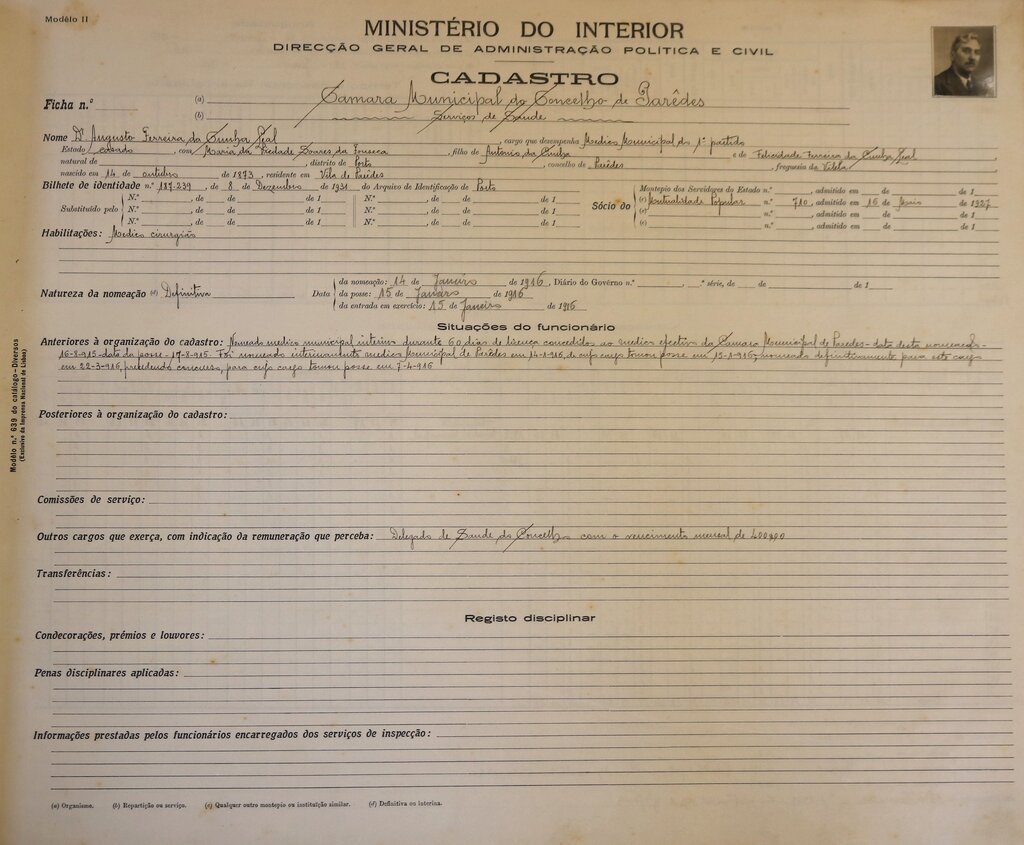 Modêlo II
MINISTÉRIO DO INTERIOR
DIRECÇÃO GERAL DE ADMINISTRAÇÃO POLÍTICA E CIVIL
CADASTRO
Ficha n.º
(a) Camara Municipal do Concelho de Parêdes
(b) Serviços de Saude
Nome Dr. Augusto Ferreira da Cunha Leal, cargo que desempenha Medico Municipal do 1º partido
Estado casado, com Maria da Piedade Soares da Fonseca, filho de Antonio da Cunha e de Felicidade Ferreira da Cunha Leal
natural de, distrito de Porto, concelho de Parêdes, freguesia de Vilela
nascido em 14 de outubro de 1873, residente em Vila de Parêdes
Bilhete de identidade n.º 187.239, de 8 de Dezembro de 1931 do Arquivo de Identificação de Porto
Substituído pelo
N.º, de de de 1 N.º, de de de 1
N.º, de de de 1 N.º, de de de 1
N.º, de de de 1 N.º, de de de 1
Sócio do
Montepio dos Servidores do Estado n.º, admitido em de de 1
(c) Mutualidade Popular n.º 710, admitido em 16 de Maio de 1927
(c) n.º, admitido em de de 1
(c) n.º, admitido em de de 1
Habilitações: Medico cirurgião
Natureza da nomeação (d) Definitiva
Data
da nomeação: 14 de Janeiro de 1916, Diário do Govêrno n.º, .ª série, de de de 1
da posse: 15 de Janeiro de 1916
da entrada em exercício: 15 de Janeiro de 1916
Situações do funcionário
Anteriores à organização do cadastro: Nomeado medico municipal interino durante 60 dias de licença concedidos ao medico efectivo da Câmara Municipal de Parêdes - data desta nomeação -
16-8-915 - data da posse - 17-8-915. Foi nomeado interinamente medico Municipal de Parêdes em 14-1-916, de cujo cargo tomou posse em 15-1-916; nomeado definitivamente para este cargo
em 22-3-916, precedendo concurso, para cujo cargo tomou posse em 7-4-916
Posteriores à organização do cadastro:
Comissões de serviço:
Outros cargos que exerça, com indicação da remuneração que perceba: Delegado de Saude do Concelho com o vencimento mensal de 400$00
Transferências:
Registo disciplinar
Condecorações, prémios e louvores:
Penas disciplinares aplicadas:
Informações prestadas pelos funcionários encarregados dos serviços de inspecção:
(a) Organismo. (b) Repartição ou serviço. (c) Qualquer outro montepio ou instituição similar. (d) Definitiva ou interina.
Modêlo n.º 639 do catálogo—Diversos
(Exclusivo da Imprensa Nacional de Lisboa)